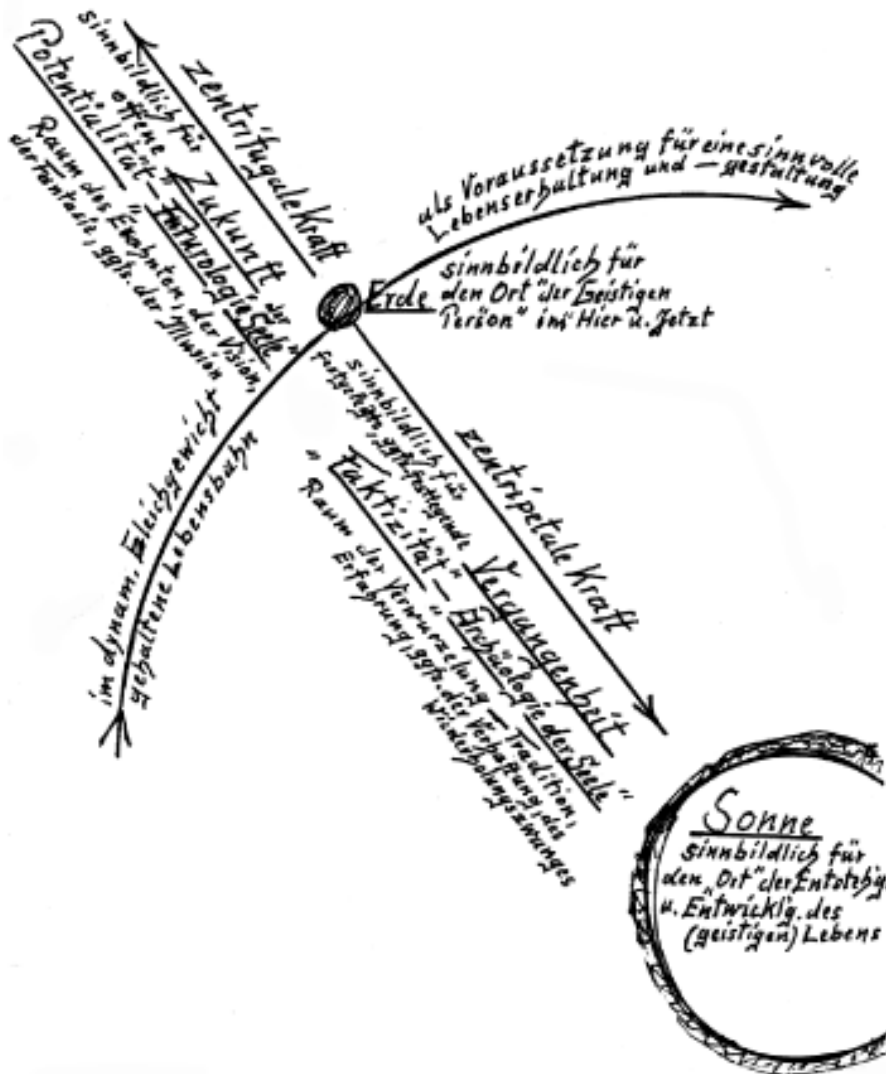 zentrifugale Kraft
sinnbildlich für
offene Zukunft
"Potentialität" – "Futurologie der Seele"
Raum des Ersehnten, der Vision,
der Fantasie, ggtr. der Illusion
als Voraussetzung für eine sinnvolle
Lebenserhaltung und – gestaltung
Erde
sinnbildlich für
den Ort "der Geistigen
Person" im Hier u. Jetzt
im dynam. Gleichgewicht
gehaltene Lebensbahn
zentripetale Kraft
sinnbildlich für
festgelegte, ggtr. festlegende Vergangenheit
"Faktizität" – "Archäologie der Seele"
Raum der Verwurzelung – Tradition,
Erfahrung, ggtr. der Verhaftung, des
Wiederholungszwanges
Sonne
sinnbildlich für
den "Ort" der
u. Entwicklg. des
(geistigen) Lebens